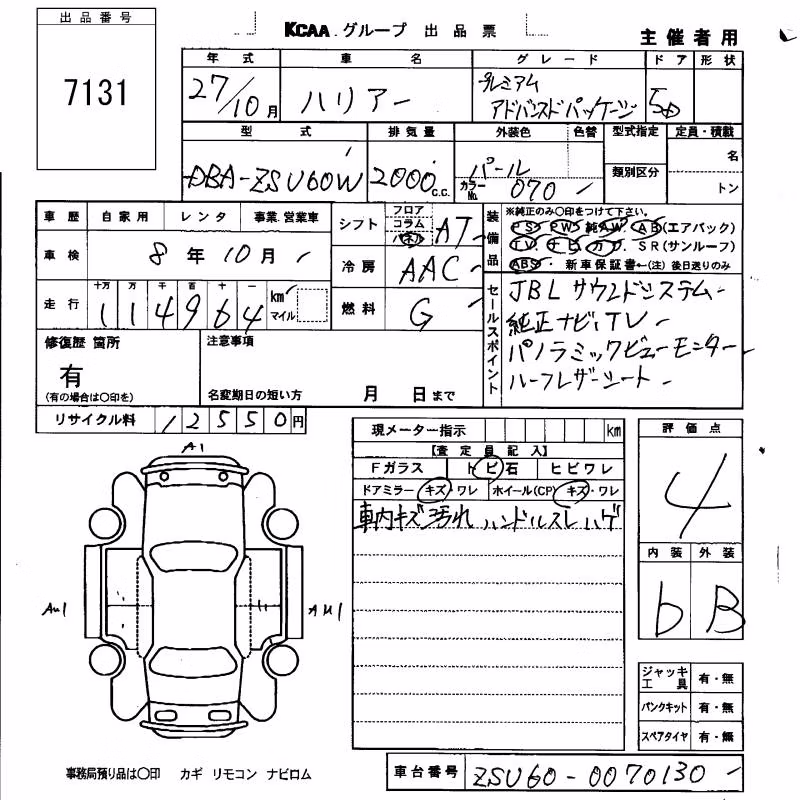 出品番号
7131
KCAA グループ 出品票
主催者用
年式 車名 グレード ドア 形状
27/10月 ハリアー プレミアム アドバンスドパッケージ 5D
型式 排気量 外装色 色替 型式指定 定員・積載
DBA-ZSU60W 2000 c.c. パール
カラーNo. 070
類別区分
名
トン
車歴 自家用 レンタ 事業 営業車
車検 8年10月
走行 十万 万 千 百 十 一
114964 km マイル
シフト フロア コラム パネル AT
冷房 AAC
燃料 G
装備品 ※純正のみ○印をつけて下さい。
PS PW 純AW AB(エアバック)
TV ナビ カワ SR(サンルーフ)
ABS 新車保証書←(注)後日送りのみ
セールスポイント
JBL サウンドシステム
純正ナビ、TV
パノラミックビューモニター
ハーフレザーシート
修復歴 箇所
有
(有の場合は○印を)
注意事項
名変期日の短い方 月 日まで
リサイクル料 12550円
現メーター指示 km
【査定員記入】
Fガラス トビ石 ヒビワレ
ドアミラー キズ・ワレ ホイール(CP) キズ・ワレ
車内キズ 汚れ ハンドルスレ ハゲ
評価点
4
内装 外装
b B
A1
AU1
AU1
ジャッキ 工具 有・無
パンクキット 有・無
スペアタイヤ 有・無
事務局預り品は○印 カギ リモコン ナビロム
車台番号 ZSU60-0070130